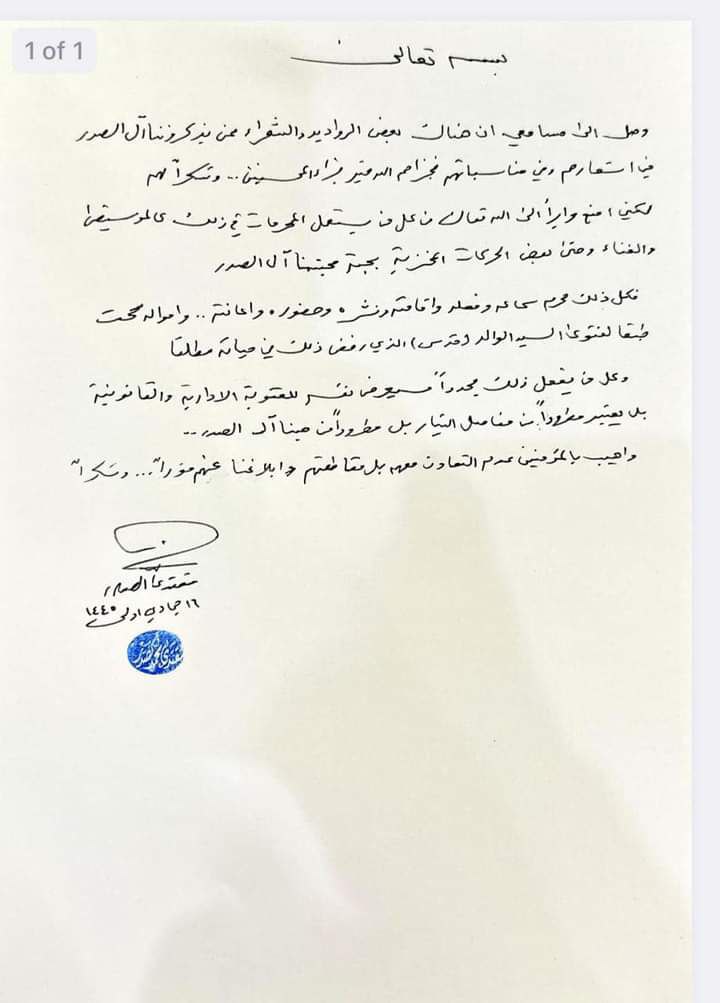 1 of 1
بسمه تعالى
وصل الى مسامعي ان هناك بعض الرواديد والشعراء ممن يذكروننا آل الصدر
في اشعارهم وفي مناسباتهم فجزاهم الله خير جزاء المحسنين... وشكراً لهم
لكني امنع وابرأ الى الله تعالى من كل من يستعمل المحرمات في ذلك كالموسيقى
والغناء وحتى بعض الحركات المخزية بحجة محبتنا آل الصدر
فكل ذلك محرم سماعه وفعله واقامته ونشره وحضوره واعانته .. وامواله سحت
طبقا لفتوى السيد الوالد (قدس) الذي رفض ذلك في حياته مطلقا
وكل من يفعل ذلك مجدداً فسيعرض نفسه للعقوبة الادارية والقانونية
بل يعتبر مطروداً من مفاصل التيار بل مطروداً من حبنا آل الصدر..
واهيب بالمؤمنين عدم التعاون معهم بل مقاطعتهم وابلاغنا عنهم فوراً... وشكراً
مقتدى الصدر
١٦ جمادي اولى ١٤٤٥